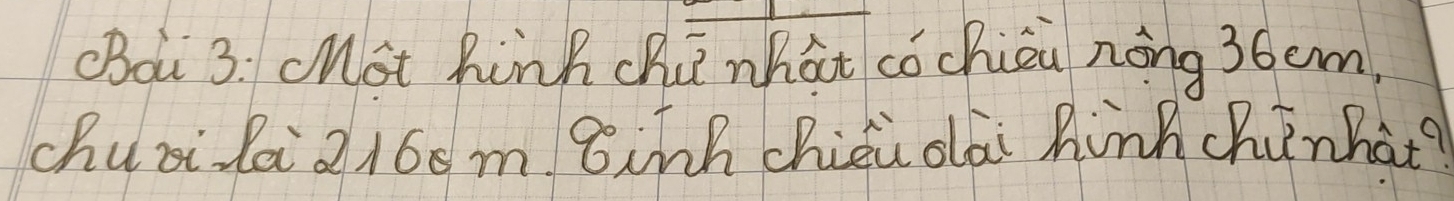 Bài 3: Một hình chữ nhật có chiều rộng 36cm,
chu vi là 216cm. Tính chiều dài hình chữ nhật?